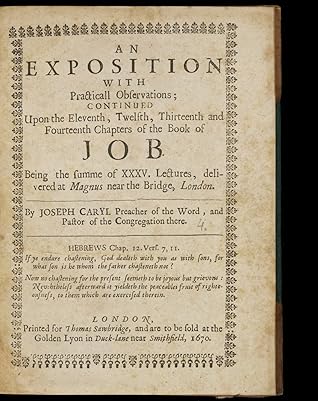 AN
EXPOSITION
WITH
Practicall Observations;
CONTINUED
Upon the Eleventh, Twelfth, Thirteenth and
Fourteenth Chapters of the Book of
JOB.
Being the summe of XXXV. Lectures, deli-
vered at Magnus near the Bridge, London.
By JOSEPH CARYL Preacher of the Word, and
Pastor of the Congregation there.
4.
HEBREWS Chap. 12. Vers. 7, 11.
If ye endure chastening, God dealeth with you as with sons, for
what son is he whom the father chasteneth not?
Now no chastening for the present seemeth to be joyous but grievous:
Nevertheless afterward it yieldeth the peaceable fruit of righte-
ousness, to them which are exercised therein.
LONDON,
Printed for Thomas Sawbridge, and are to be sold at the
Golden Lyon in Duck-lane near Smithfield, 1670.